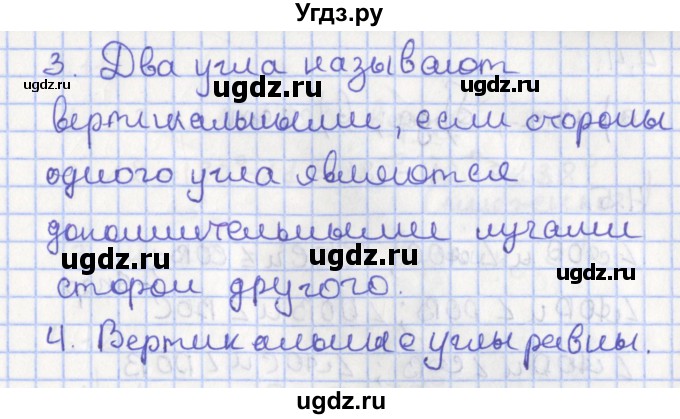 Угдз.ру
3. Два угла называют
вертикальными, если стороны
одного угла являются
дополнительными лучами
сторон другого.
4. Вертикальные углы равны.
ugdz.ru ugdz.ru ugdz.ru
ugdz.ru ugdz.ru
ugdz.ru ugdz.ru
ugdz.ru ugdz.ru
ugdz.ru ugdz.ru